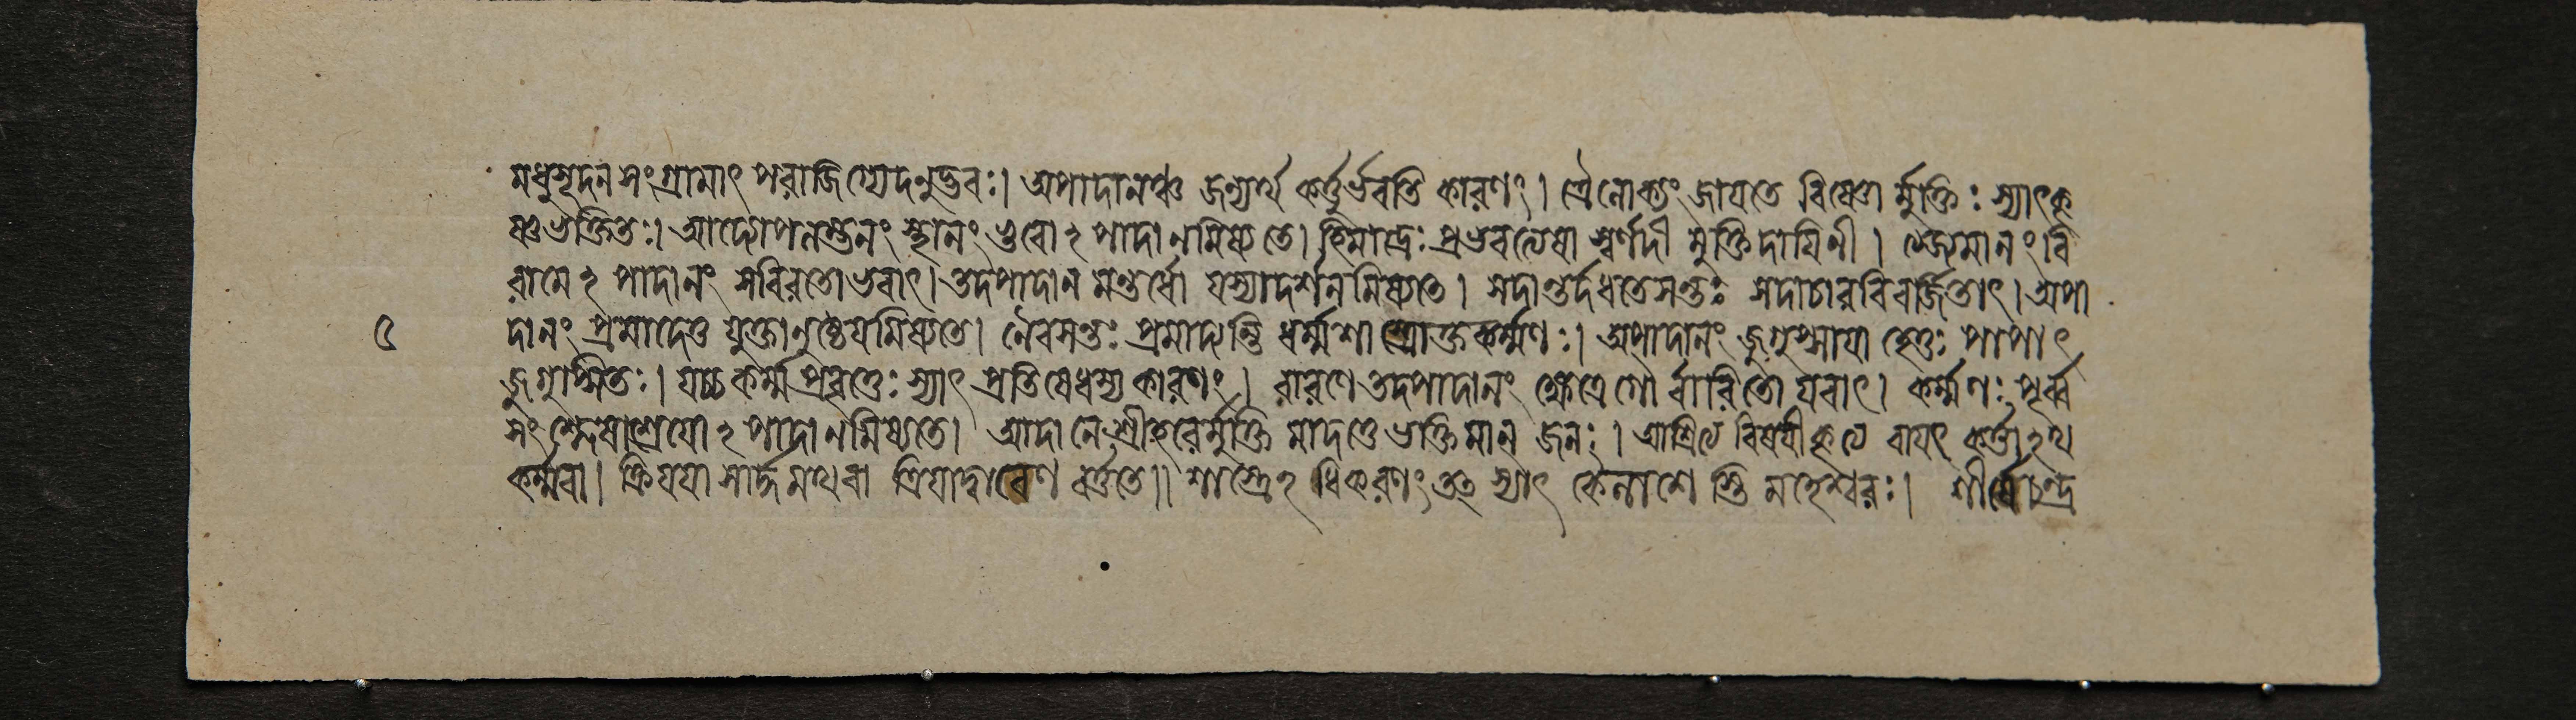 মধুসূদনসংগ্রামাৎ পরাজিগ্যেদনুদ্ভবঃ। অপাদানঞ্চ জন্যর্থ কর্ত্তুর্ভবতি কারণং। ত্রৈলোক্যং জায়তে বিষ্ণো র্মুক্তিঃ স্যাৎকৃ
ষ্ণভক্তিতঃ। আদ্যোপলম্ভনং স্থানং ভুবোঽ পাদানমিষ্যতে। হিমাদ্রেঃ প্রভবত্যেষা স্বর্ণদী মুক্তিদায়িনী। ত্যজ্যমানং বি
রামেঽ পাদানং সবিরতোভবাৎ। তদপাদান মন্তর্ধৌ যস্যাদর্শনমিষ্যতে। সদান্তর্দধতেসন্তঃ সদাচারবিবর্জিতাৎ। অপা
৫ দানং প্রমাদেতু যুক্তানুষ্ঠেয়মিষ্যতে। নৈবসন্তঃ প্রমাদ্যন্তি ধর্ম্মশাস্ত্রোক্তকর্ম্মণঃ। অপাদানং জুগুপ্সায়া হেতুঃ পাপাৎ
জুগুপ্সিতঃ। যচ্চ কর্ম্ম প্রবৃত্তেঃ স্যাৎ প্রতিষেধস্য কারণং। বারণে তদপাদানং ক্ষেত্রেগৌ র্বারিতো যবাৎ। কর্ম্মণঃ পূর্ব্ব
সংশ্লেষাশ্রয়োঽ পাদানমিষ্যতে। আদানে শ্রীহরের্মুক্তি মাদত্তে ভক্তিমান্ জনঃ। আশ্রিত্য বিষয়ীকৃত্য বাযৎ কর্ত্তাঽথ
কর্ম্মবা। ক্রিয়য়া সার্দ্ধমথবা ক্রিয়াদ্বারেণ বর্ত্ততে॥ শাস্ত্রেঽ ধিকরণং তত্র স্যাৎ কৈলাশে স্তি মহেশ্বরঃ। শীর্ষেচন্দ্র